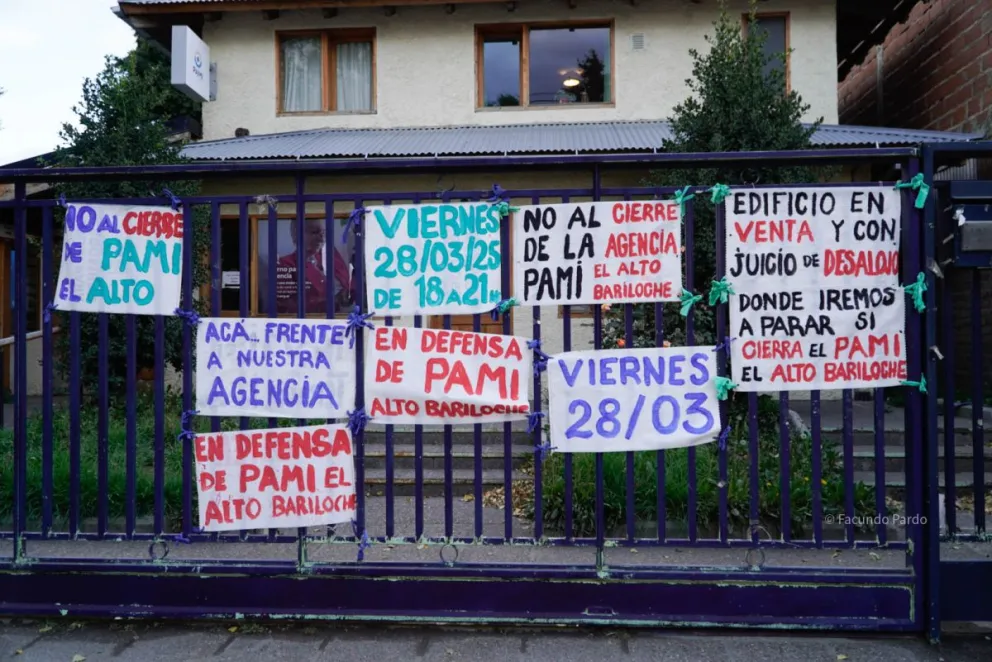 NO AL CIERRE
DE PAMI
EL ALTO
VIERNES
28/03/25
DE 18 A 21H
NO AL CIERRE
DE LA AGENCIA
PAMÍ EL ALTO
BARILOCHE
EDIFICIO EN
VENTA Y CON
JUICIO DE DESALOJO
DONDE IREMOS
A PARAR SI
CIERRA EL PAMI
EL ALTO BARILOCHE
ACÁ... FRENTE
A NUESTRA
AGENCIA
EN DEFENSA
DE PAMI
ALTO BARILOCHE
VIERNES
28/03
EN DEFENSA
DE PAMI EL
ALTO BARILOCHE
© Facundo Pardo